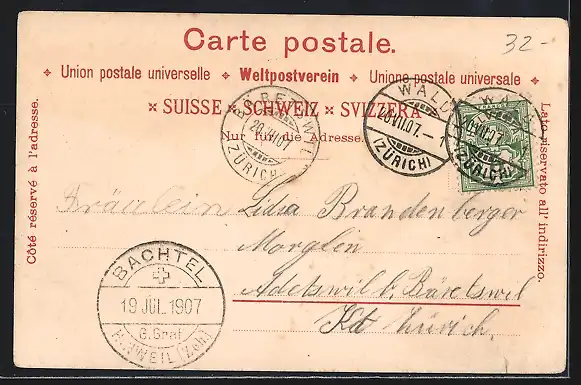 32-
Carte postale.
Union postale universelle Weltpostverein Unione postale universale
SUISSE SCHWEIZ SVIZZERA
Nur für die Adresse.
Côté réservé à l'adresse.
Lato riservato all' indirizzo.
BÄRETSWIL
20.VII.07
(ZÜRICH)
WALD
20.VII.07.-1
(ZÜRICH)
WALD
20.VII.07
(ZÜRICH)
Fräulein Lidia Brandenberger
Adetswil b. Bäretswil
Kt Zürich.
BACHTEL
19 JUL. 1907
G. Graf